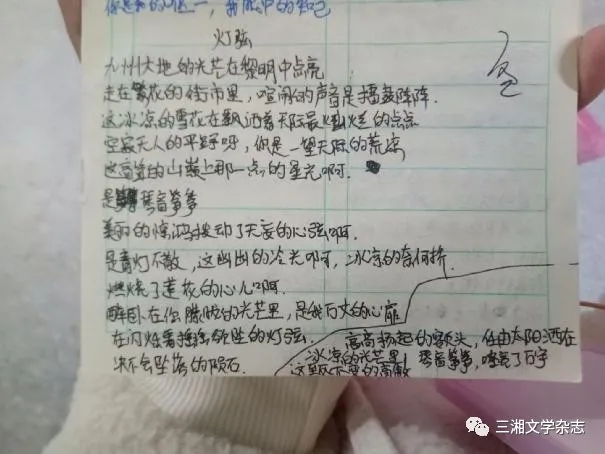 你是我的唯一，我心中的知己
灯弦
九州大地的光芒在黎明中点亮
走在繁花的街市里，喧闹的声音是擂鼓阵阵.
这冰凉的雪花在飘洒着天际最灿烂的点点
空寂无人的平野呀，你是一望无际的荒凉
这高耸的山巅上那一点的星光啊.
是琴音筝筝
美丽的惊鸿拨动了天妄的心弦啊.
是青灯不散，这幽幽的冷光啊，冰凉的奈何桥.
燃烧了莲花的心儿啊.
醉卧在你朦胧的光芒里，是我万丈的心扉
在闪烁着摇摇欲坠的灯弦.
永不会坠落的陨石
高高扬起的额头，任由太阳洒在
冰凉的光芒里 琴音筝筝，喧哗了万字
这默不变的高傲
三湘文学杂志